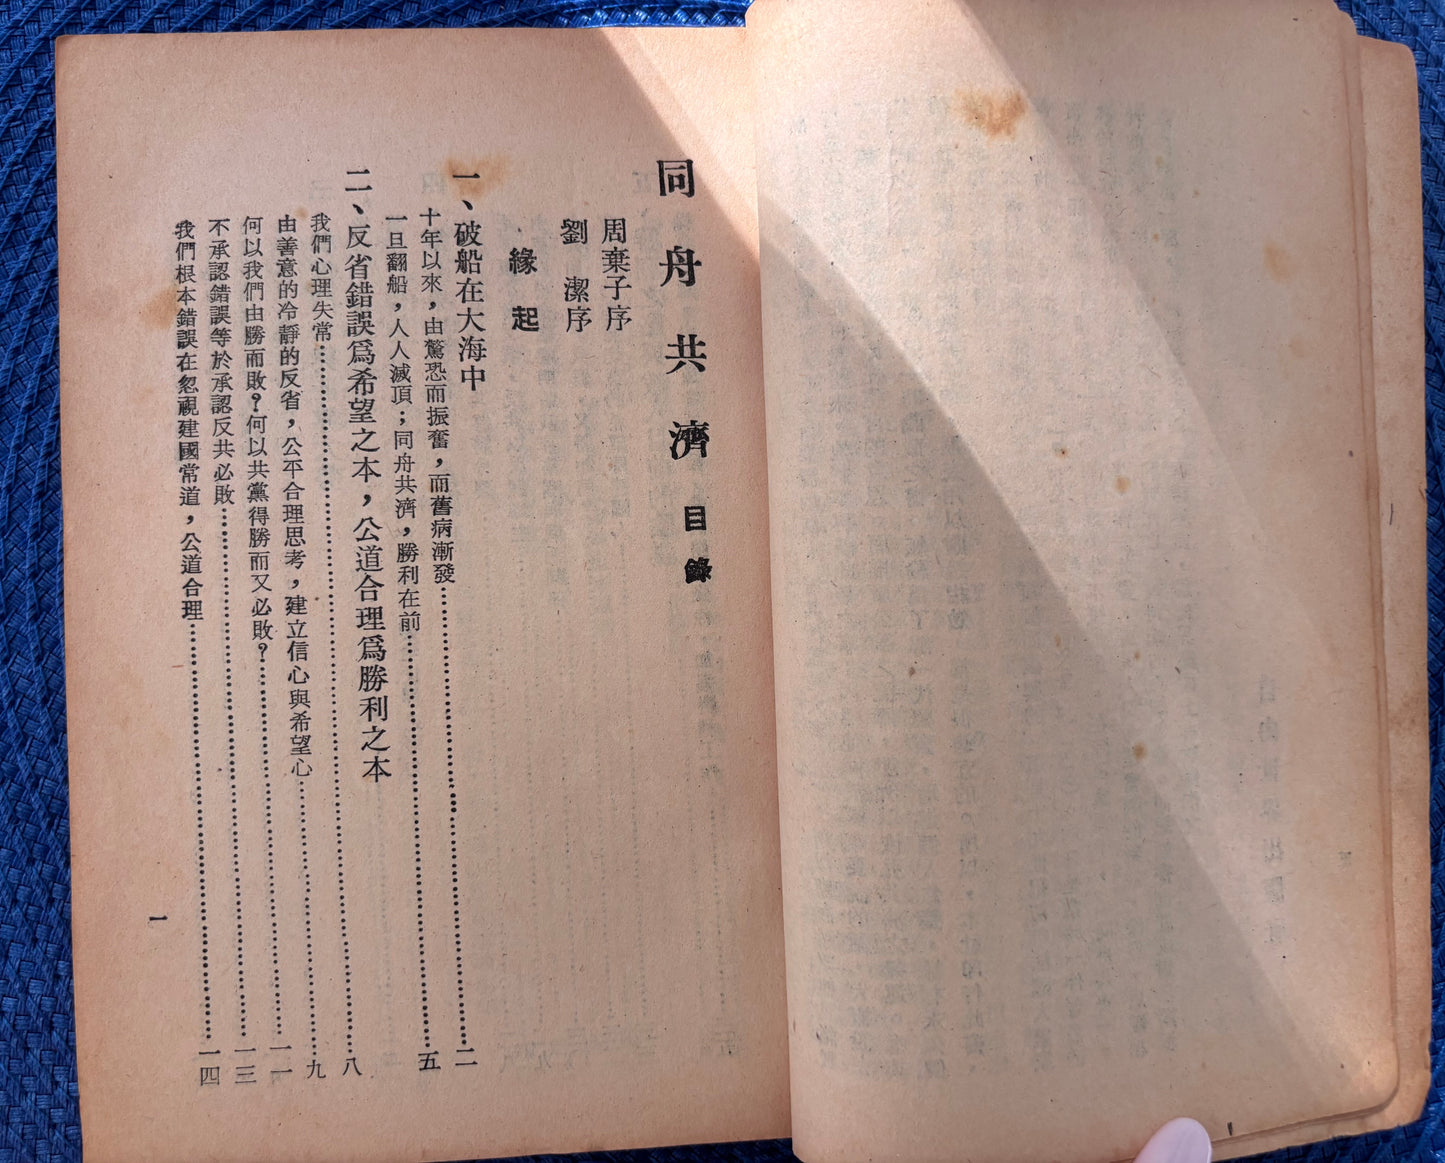 同舟共濟 目錄
周棄子序
劉 潔序
緣起
一、破船在大海中
十年以來，由驚恐而振奮，而舊病漸發……二
一旦翻船，人人滅頂；同舟共濟，勝利在前……五
二、反省錯誤爲希望之本，公道合理爲勝利之本
我們心理失常……八
由善意的冷靜的反省，公平合理思考，建立信心與希望心……九
何以我們由勝而敗？何以共黨得勝而又必敗？……一一
不承認錯誤等於承認反共必敗……一三
我們根本錯誤在忽視建國常道，公道合理……一四
一